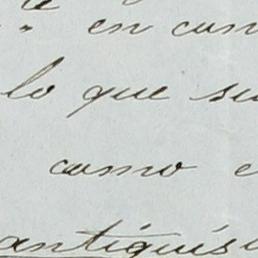 en com
lo que su
como e
antiguis